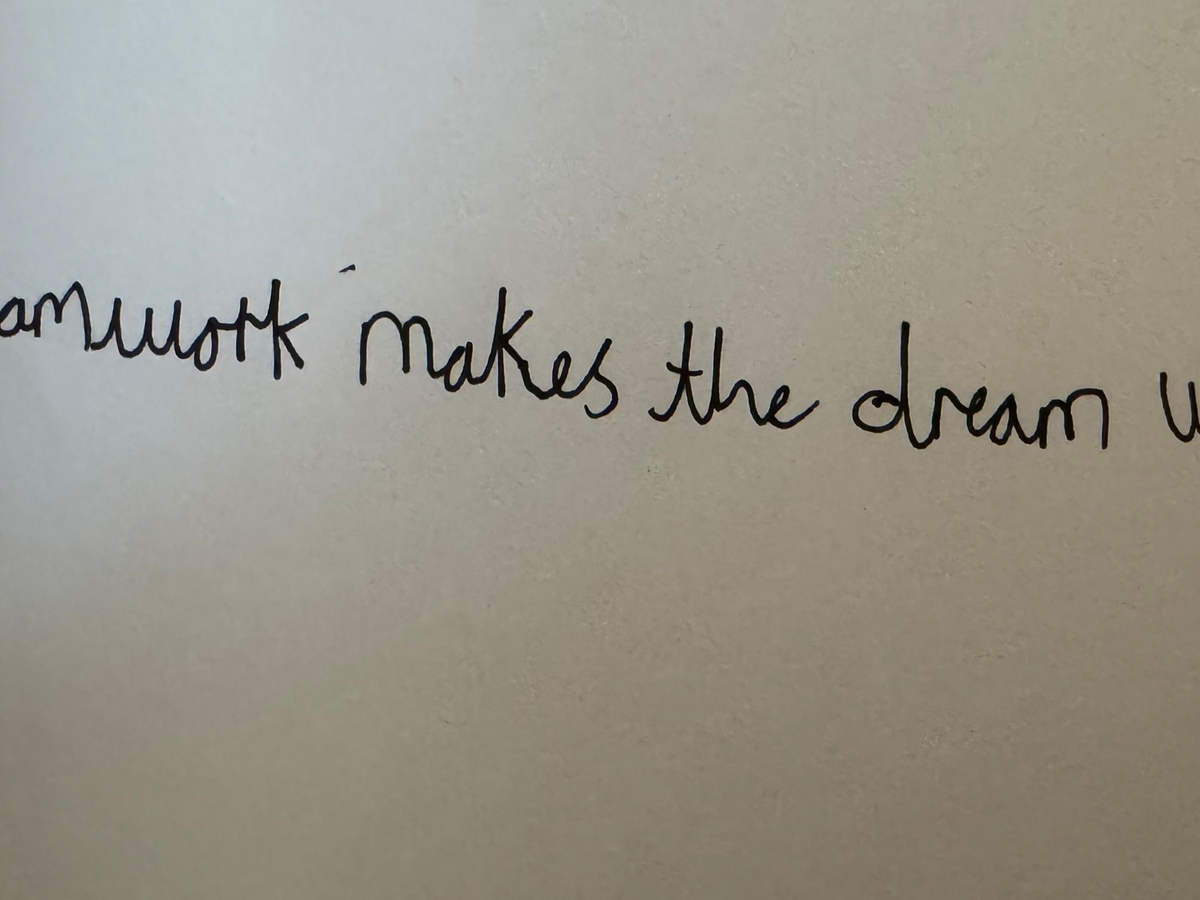 amwork makes the dream w